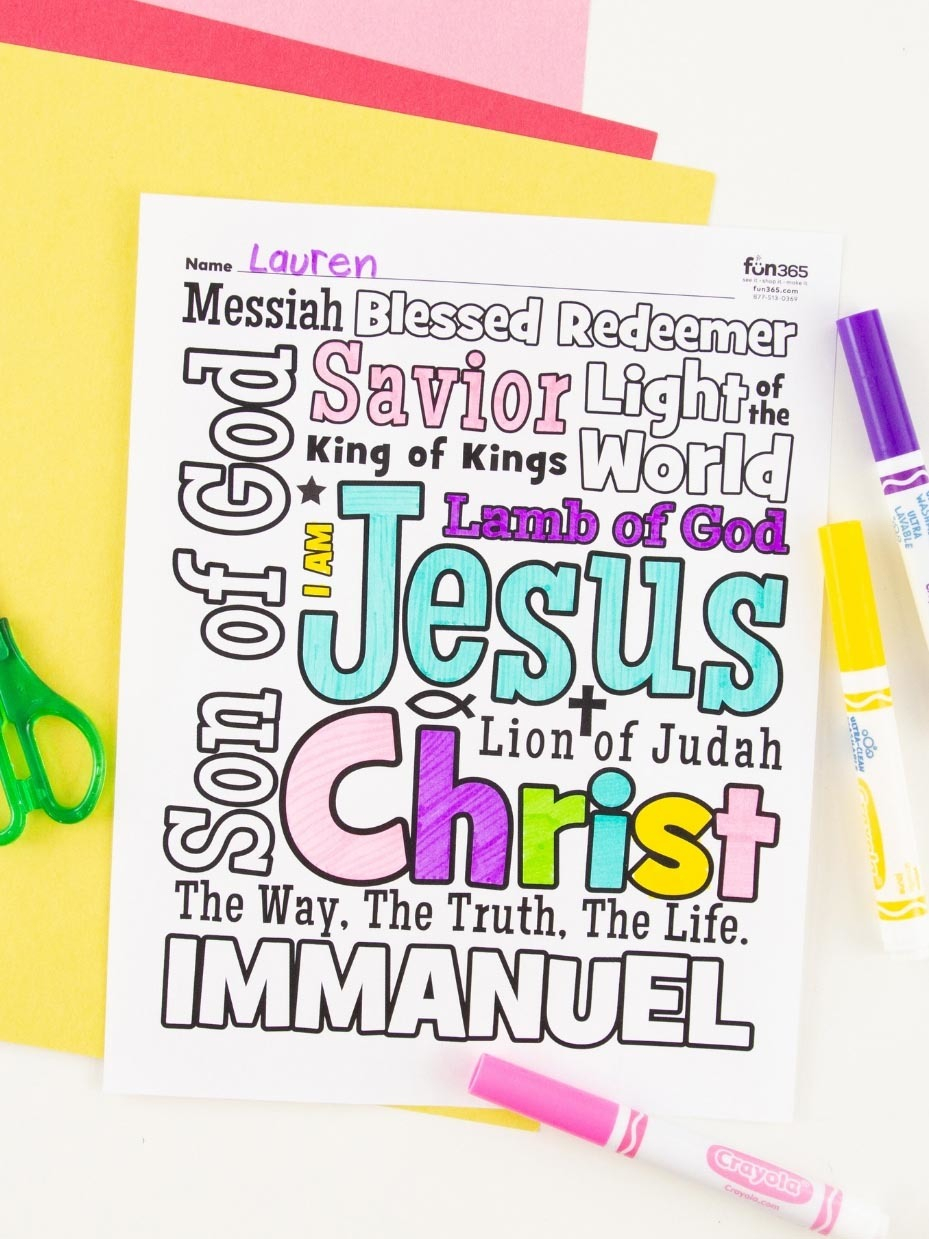 Name Lauren
fun365
see it • shop it • make it
fun365.com
877-513-0369
Messiah Blessed Redeemer
Savior Light of the
King of Kings World
Son of God
I AM
Lamb of God
Jesus
Lion of Judah
Christ
The Way, The Truth, The Life.
IMMANUEL
ULTRA
LAVABLE
ULTRA-CLEAN
Crayola
Crayola
Crayola.com